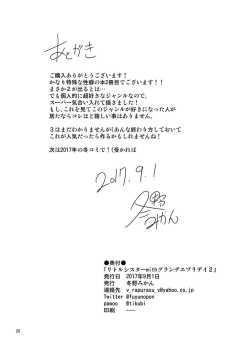 あとがき
ご購入ありがとうございます！
かなり特殊な性癖の本2冊目でございます！！
まさか２が出るとは…
でも個人的に超好きなジャンルなので、
スーパー気合い入れて描きました！
もし、これを見てこのジャンルが好きになった人が
居たならコレほど嬉しい事はありません。
３はまだわかりませんが(あんな終わり方しておいて
これが人気だったら作るかもしれませんね。
次は2017年の冬コミで！(受かれば
2017.9.1
冬野
みかん
●奥付●
『リトルシスターwithグランデエブリデイ２』
発行日 2017年9月1日
発行 冬野みかん
連絡先 v_rapurasu_v@yahoo.co.jp
Twitter @fuyunopon
pawoo @tikubi
印刷 ──